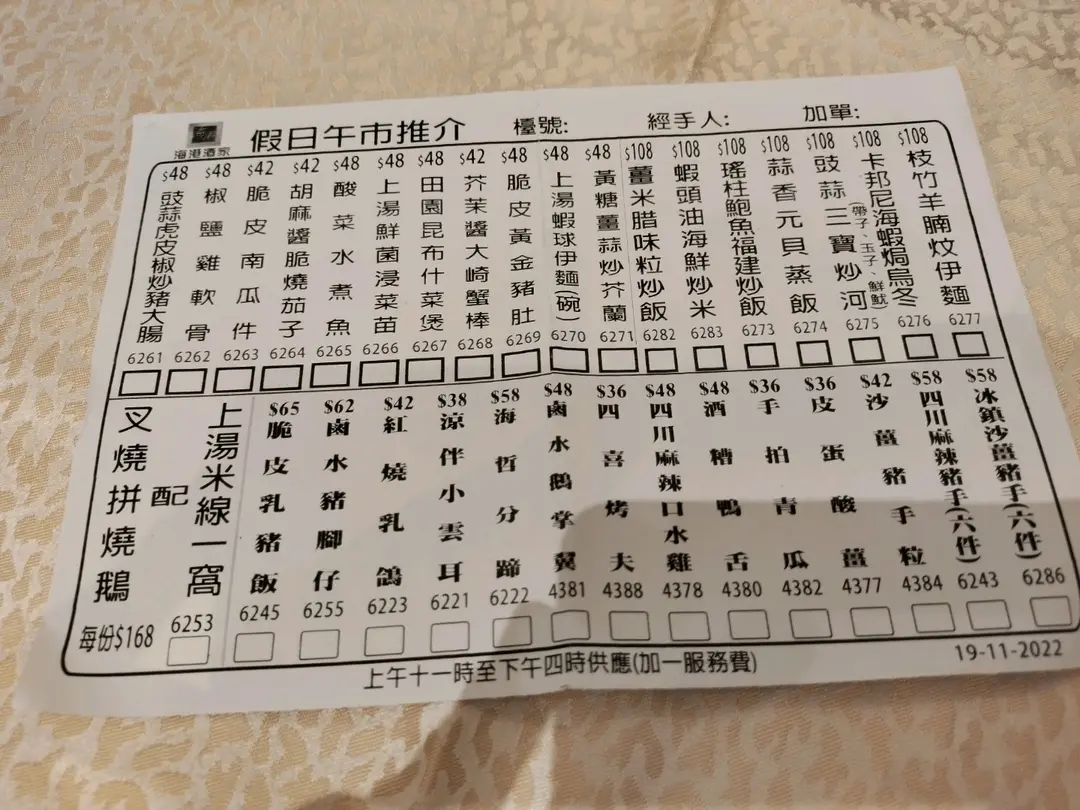 海港酒家
假日午市推介
檯號:
經手人:
加單:
$48
豉蒜虎皮椒炒豬大腸
6261
$48
椒鹽雞軟骨
6262
$42
脆皮南瓜件
6263
$42
胡麻醬脆燒茄子
6264
$48
酸菜水煮魚
6265
$48
上湯鮮菌浸菜苗
6266
$48
田園昆布什菜煲
6267
$42
芥茉醬大崎蟹棒
6268
$48
脆皮黃金豬肚
6269
$48
上湯蝦球伊麵(碗)
6270
$48
黃糖薑蒜炒芥蘭
6271
$108
薑米腊味粒炒飯
6282
$108
蝦頭油海鮮炒米
6283
$108
瑤柱鮑魚福建炒飯
6273
$108
蒜香元貝蒸飯
6274
$108
豉蒜三寶炒河
(帶子、玉子、鮮魷)
6275
$108
卡邦尼海蝦焗烏冬
6276
$108
枝竹羊腩炆伊麵
6277
叉燒拼燒鵝
配
上湯米線一窩
每份$168
6253
$65
脆皮乳豬飯
6245
$62
鹵水豬腳仔
6255
$42
紅燒乳鴿
6223
$38
涼伴小雲耳
6221
$58
海哲分蹄
6222
$48
鹵水鵝掌翼
4381
$36
四喜烤夫
4388
$48
四川麻辣口水雞
4378
$48
酒糟鴨舌
4380
$36
手拍青瓜
4382
$36
皮蛋酸薑
4377
$42
沙薑豬手粒
4384
$58
四川麻辣豬手(六件)
6243
$58
冰鎮沙薑豬手(六件)
6286
上午十一時至下午四時供應(加一服務費)
19-11-2022